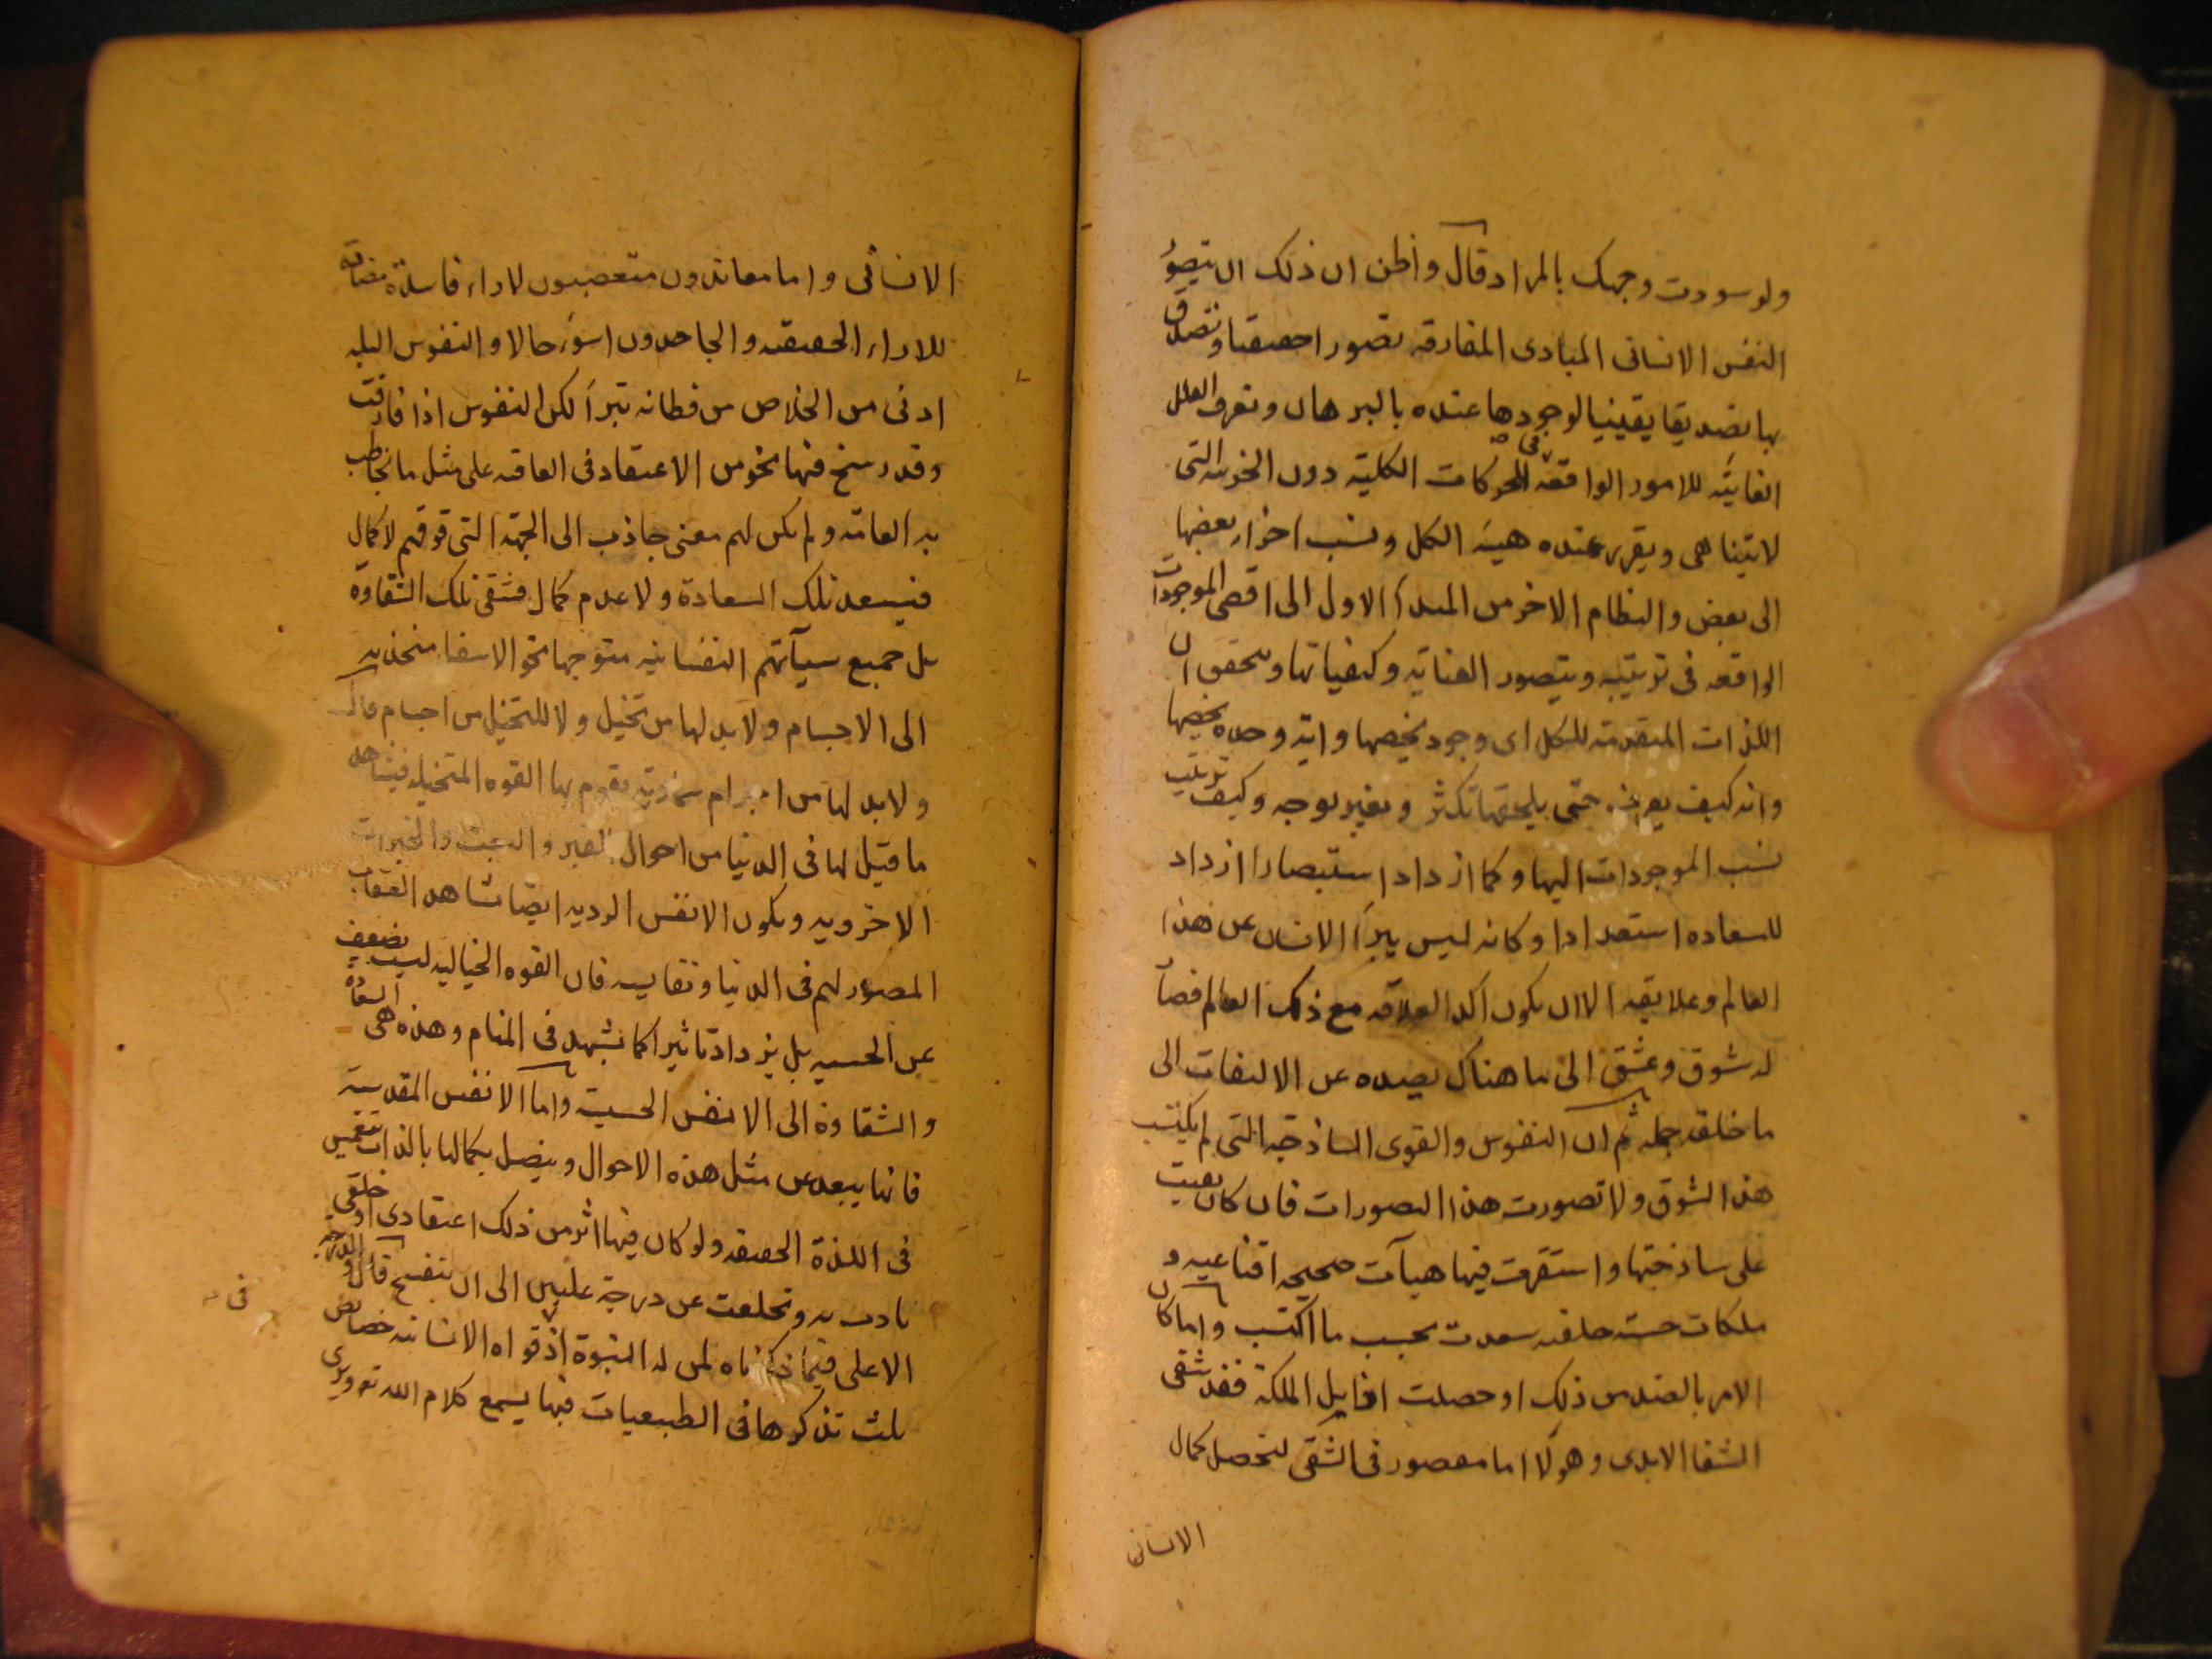 ولو سودت وجهك بالمراد قال واظن ان ذلك ان يتصور
النفس الانسانى المبادى المفارقه تصورا حقيقيا وتصدق
بها تصديقا يقينيا لوجودها عنده بالبرهان وتعرف العلل
الغايية للامور الواقعة فى الحركات الكلية دون الجزييه التى
لا يتناهى ويقرر عنده هيئة الكل ونسب اجزاء بعضها
الى بعض والنظام الاخر من المبدأ الاول الى اقصى الموجودات
الواقعه فى ترتيبه ويتصور العناية وكيفياتها ويتحقق ان
الذات المتقدمة للكل اى وجود يخصها واية وحده يخصها
وانه كيف يعرف حتى يلحقها تكثر وتغير بوجه وكيف ترتيب
نسب الموجودات اليها وكما ازداد استبصارا ازداد
للسعاده استعدادا وكانه ليس يبرأ الانسان عن هذا
العالم وعلايقه الا ان يكون اكد العلاقه مع ذلك العالم فصار
له شوق وعشق الى ما هناك يصده عن الالتفات الى
ما خلفه جمله ثم ان النفوس والقوى الساذجة التى لم يكتسب
هذا الشوق ولا تصورت هذا التصورات فان كان بقيت
على ساذجتها واستقرت فيها هيآت صحيحه اقناعيه و
ملكات حسنه خلقيه سعدت بحسب ما اكتسب واما كان
الامر بالضد من ذلك او حصلت اوايل الملكة فقد شقى
الشقا الابدى وهولا اما مقصور فى الشقى لتحصل كمال
الانسانى
الانسانى واما معاندون متعصبون لاراء فاسدة مضادة
للاراء الحقيقه والجاحدون اسوء حالا والنفوس البله
ادنى من الخلاص من فطانه تبرأ لكن النفوس اذا فارقت
وقد رسخ فيها نحو من الاعتقاد فى العاقبه على مثل ما يخاطب
به العامة ولم يكن لهم معنى جاذب الى الجهة التى فوقهم لا كمال
فيسعد تلك السعادة ولا عدم كمال فشقى تلك الشقاوة
بل جميع سيآتهم النفسانيه متوجها نحو الاسفل منجذبه
الى الاجسام ولا بد لها من تخيل ولا للتخيل من اجسام قال
ولا بد لها من اجرام سماوية يقوم بها القوه المتخيله فيشاهد
ما قيل لها فى الدنيا من احوال القبر والبعث والخيرات
الاخرويه ويكون الانفس الرديه ايضا تشاهد العقاب
المصور لهم فى الدنيا وتقاسيه فان القوه الخياليه ليست يضعف
عن الحسيه بل يزداد تاثيرا كما يشهد فى المنام وهذه هى السعادة
والشقاوة الى الانفس الحسية واما الانفس المقدسة
فانها يبعد عن مثل هذه الاحوال ويتصل بكمالها بالذات تنغمس
فى اللذة الحقيقه ولو كان فيها اثر من ذلك اعتقادى او خلقى
تادت به وتخلفت عن درجة عليين الى ان ينفسخ قال والدرجه
الاعلى فيما ذكرناه لمن له النبوة اذ قواه الانسانيه خصايص
ثلث تذكرها فى الطبيعيات فبها يسمع كلام الله تعالى ويرى
فى